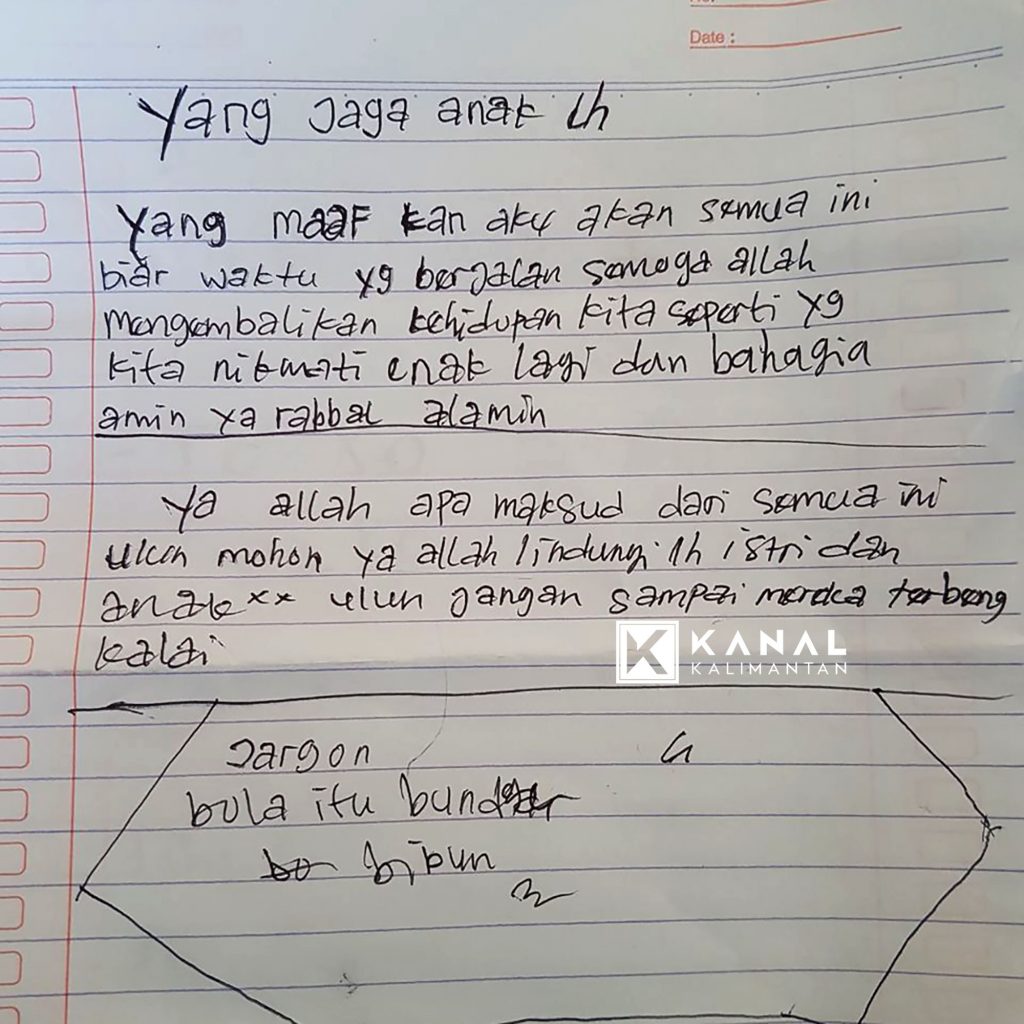 Date :
Yang Jaga anak lh
Yang maaf kan aku akan semua ini
biar waktu yg berjalan semoga allah
mengembalikan kehidupan kita seperti yg
kita nikmati enak lagi dan bahagia
amin ya rabbal alamin
Ya allah apa maksud dari semua ini
ulun mohon ya allah lindungi lh istri dan
anak×× ulun jangan sampai mereka terbeng
kalai
KANAL
KALIMANTAN
Jargon
bola itu bundar